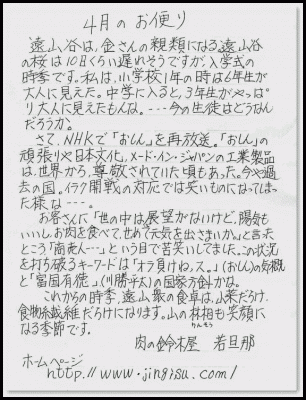 4月のお便り
遠山谷は、金さんの親類になる遠山谷
の桜は10日くらい遅れそうですが、入学式の
時季です。私は、小学校1年の時は6年生が
大人に見えた。中学に入ると、3年生がやっぱ
り大人に見えたもんな。---今の生徒はどうなん
だろうか。
さて、NHKで「おしん」を再放送。「おしん」の
頑張りや日本文化。メード・イン・ジャパンの工業製品
は、世界から、尊敬されていた頃もあった。今や過
去の国。イラク開戦の対応では笑いものになってしまっ
た様な---。
お客さんに「世の中は展望がないけど、陽気も
いいし、お肉を食べて、せめて元気を出さまいか。」と言った
ところ「商売人---」という目で苦笑いしてました。この状況
を打ち破るキーワードは「オラ負けねぇス。」(おしん)の気概
と「富国有徳」(川勝平太)の国家方針かな。
これからの時季、遠山郷の食卓は、山菜だらけ、
食物繊維だらけになります。山の林相も笑顔に
りんそう
なる季節です。
肉の鈴木屋 若旦那
ホームページ
http://www.jingisu.com/